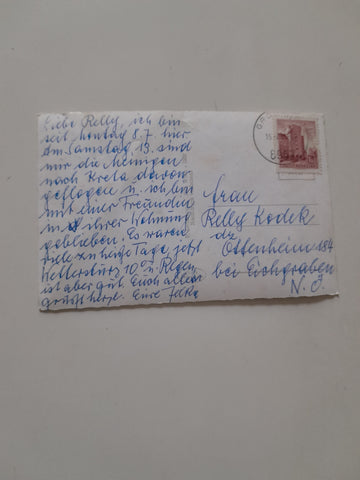 Liebe Relly, ich bin
seit Montag 8.7 hier
Am Samstag 13. sind
mir die Meinigen
nach Kreta davon
geflogen u. ich bin
mit einer Freundin
in ihrer Wohnung
geblieben. Es waren
viele zu heiße Tage, jetzt
Wettersturz 10° u. Regen,
ist aber gut. Euch allen
grüsst herzl. Eure Jelka
Frau
Relly Kodek
dz.
Ottenheim
bei Eichgraben
N.Ö.